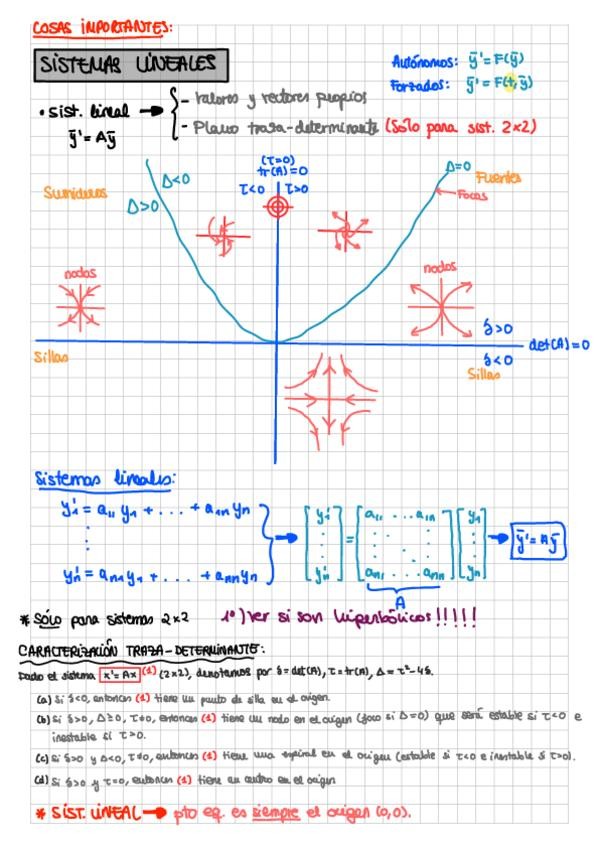 COSAS IMPORTANTES:
SISTEMAS LINEALES
Autónomos: ȳ' = F(ȳ)
Forzados: ȳ' = F(t, ȳ)
• sist. lineal → { - valores y vectores propios
ȳ' = Aȳ
- Plano traza-determinante (Solo para sist. 2x2)
(τ=0)
tr(A)=0
Δ<0
τ<0
τ>0
Δ=0
Sumideros
Δ>0
Fuentes
Focos
nodos
nodos
δ>0
det(A)=0
δ<0
Sillas
Sillas
Sistemas lineales:
y₁' = a₁₁ y₁ + . . . + a₁ₙ yₙ
yₙ' = aₙ₁ y₁ + . . . + aₙₙ yₙ
[y₁' ⋮ yₙ'] = [a₁₁ . . . a₁ₙ ⋮ aₙ₁ . . . aₙₙ] [y₁ ⋮ yₙ] → ȳ' = Aȳ
A
* Sólo para sistemas 2x2
1º) ver si son hiperbólicos!!!!!
CARACTERIZACIÓN TRAZA-DETERMINANTE:
Dado el sistema x' = Ax (1) (2x2), denotamos por δ = det(A), τ = tr(A), Δ = τ² - 4δ.
(a) Si δ<0, entonces (1) tiene un punto de silla en el origen.
(b) Si δ>0, Δ≥0, τ≠0, entonces (1) tiene un nodo en el origen (foco si Δ=0) que será estable si τ<0 e
inestable si τ>0.
(c) Si δ>0 y Δ<0, τ≠0, entonces (1) tiene una espiral en el origen (estable si τ<0 e inestable si τ>0).
(d) Si δ>0 y τ=0, entonces (1) tiene un centro en el origen
* SIST. LINEAL → pto eq. es siempre el origen (0,0).